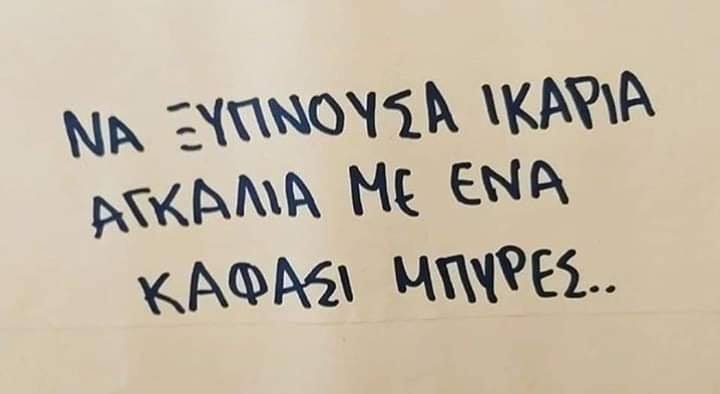 ΝΑ ΞΥΠΝΟΥΣΑ ΙΚΑΡΙΑ
ΑΓΚΑΛΙΑ ΜΕ ΕΝΑ
ΚΑΦΑΣΙ ΜΠΥΡΕΣ..